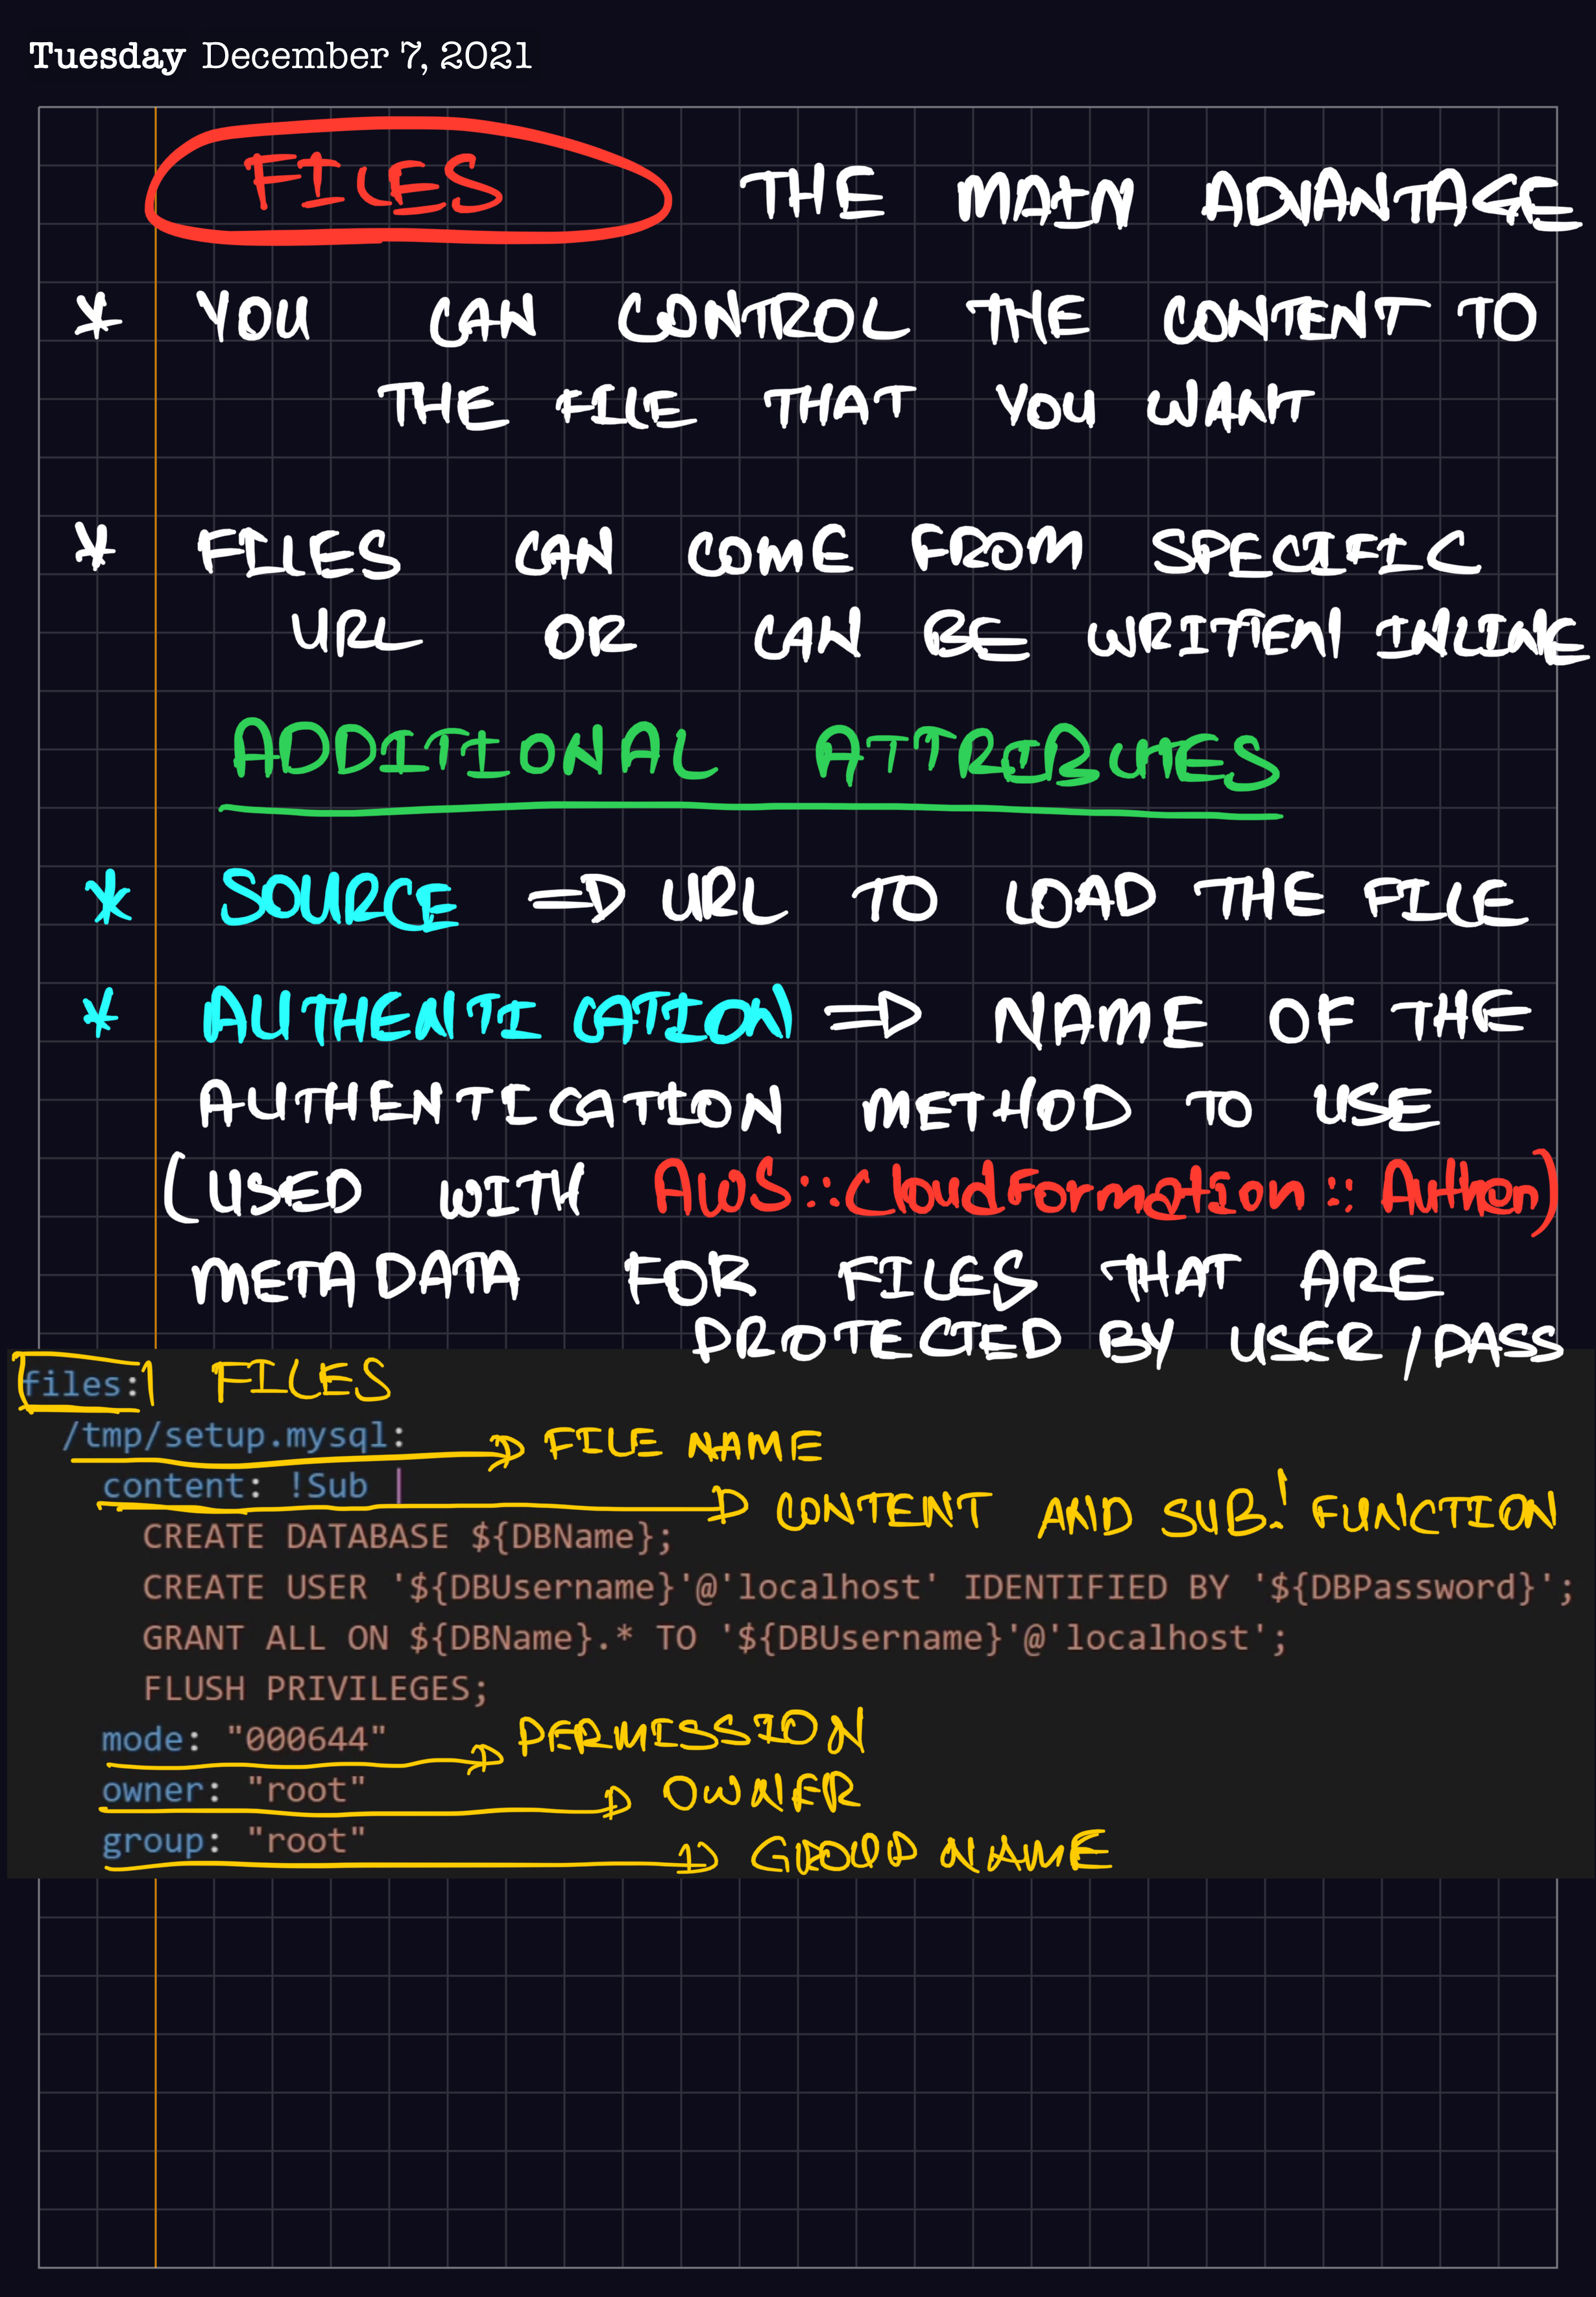 Tuesday December 7, 2021
FILES THE MAIN ADVANTAGE
* YOU CAN CONTROL THE CONTENT TO
THE FILE THAT YOU WANT
* FILES CAN COME FROM SPECIFIC
URL OR CAN BE WRITTEN INLINE
ADDITIONAL ATTRIBUTES
* SOURCE => URL TO LOAD THE FILE
* AUTHENTICATION => NAME OF THE
AUTHENTICATION METHOD TO USE
(USED WITH AWS::CloudFormation::Authen)
METADATA FOR FILES THAT ARE
PROTECTED BY USER/PASS
files: FILES
/tmp/setup.mysql: → FILE NAME
content: !Sub | → CONTENT AND SUB! FUNCTION
CREATE DATABASE ${DBName};
CREATE USER '${DBUsername}'@'localhost' IDENTIFIED BY '${DBPassword}';
GRANT ALL ON ${DBName}.* TO '${DBUsername}'@'localhost';
FLUSH PRIVILEGES;
mode: "000644" → PERMISSION
owner: "root" → OWNER
group: "root" → GROUP NAME